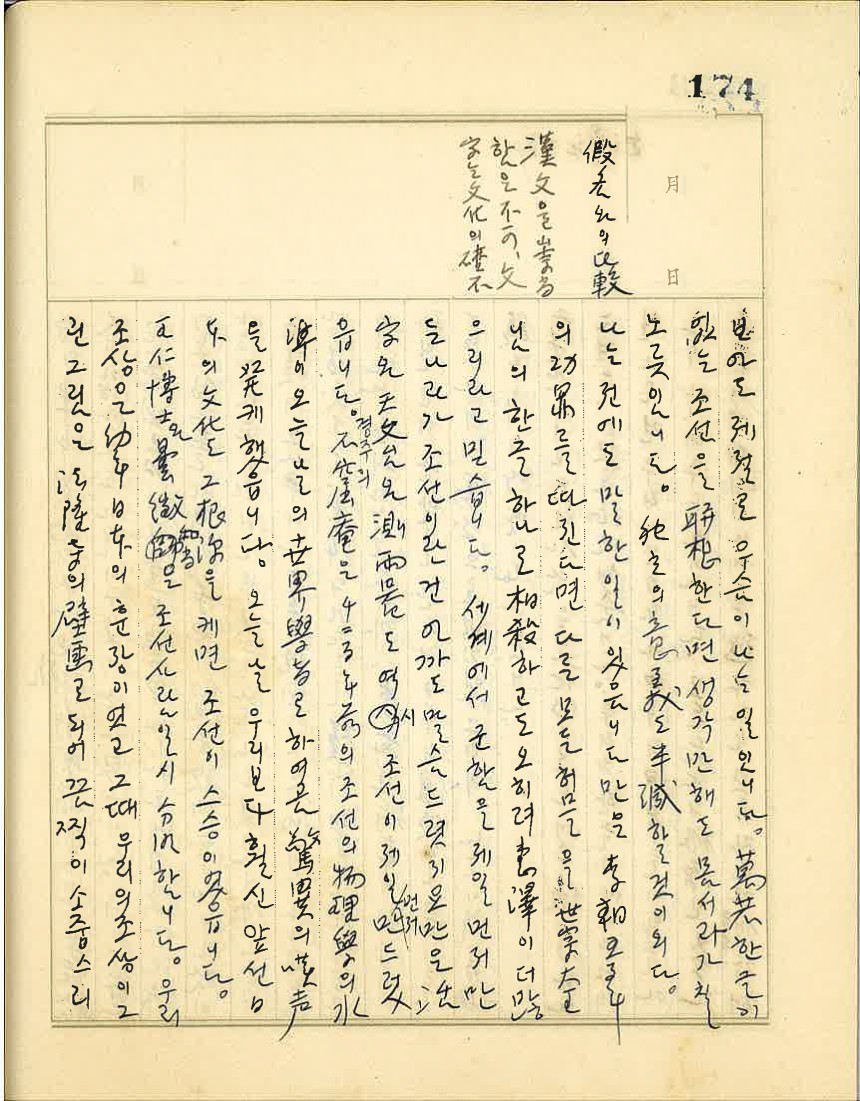 174
月
日
假名와의 比較
漢文을 崇尙
함은 不可、文
字는 文化의 礎石
보아도 제절로 우슴이 나는 일입니다。萬若 한글이
없는 조선을 聯想한다면 생각만 해도 몸서리가 칠
노릇입니다。獨立의 意義도 半減할 것이외다。
나는 전에도 말한 일이 있습니다만은 李朝五百年
의 功罪를 따진다면 다른 모든 허물을 世宗大王
님의 한글 하나로 相殺하고도 오히려 惠澤이 더 많
으리라고 믿습니다。세계에서 군함을 제일 먼저 만
든 나라가 조선이란 건 아까도 말슴드렷지요만은 活
字와 天文台와 測雨器도 역시 조선이 제일 먼저 만드럿
읍니다。경주의 石窟庵은 千二百年前의 조선의 物理學의 水
準이 오늘날의 世界學者로 하여금 驚異의 嘆声
을 發케 했습니다。오늘날 우리보다 훨신 앞선 日
本의 文化도 그 根源을 케면 조선이 스승이였읍니다。
王仁博士와 曇徵은 조선사람임시 分明합니다。우리
조상은 幼年日本의 훈장이였고 그때 우리의 조상이 그
린 그림은 法隆寺의 壁画로 되어 끔찍이 소중스리